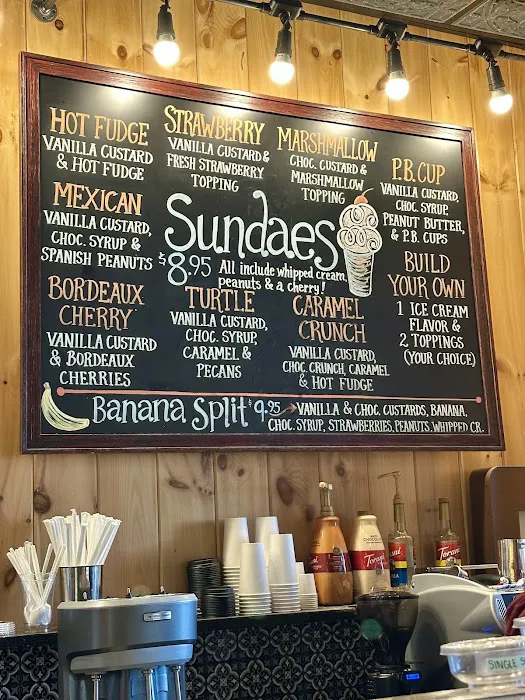 HOT FUDGE
VANILLA CUSTARD
& HOT FUDGE
STRAWBERRY
VANILLA CUSTARD &
FRESH STRAWBERRY
TOPPING
MARSHMALLOW
CHOC. CUSTARD &
MARSHMALLOW
TOPPING
P.B. CUP
VANILLA CUSTARD,
CHOC. SYRUP,
PEANUT BUTTER,
& P.B. CUPS
MEXICAN
VANILLA CUSTARD,
CHOC. SYRUP &
SPANISH PEANUTS
Sundaes
$8.95 All include whipped cream,
peanuts & a cherry!
BUILD
YOUR OWN
1 ICE CREAM
FLAVOR &
2 TOPPINGS
(YOUR CHOICE)
BORDEAUX
CHERRY
VANILLA CUSTARD
& BORDEAUX
CHERRIES
TURTLE
VANILLA CUSTARD,
CHOC. SYRUP,
CARAMEL &
PECANS
CARAMEL
CRUNCH
VANILLA CUSTARD,
CHOC. CRUNCH, CARAMEL
& HOT FUDGE
Banana Split $9.95 → VANILLA & CHOC. CUSTARDS, BANANA,
CHOC. SYRUP, STRAWBERRIES, PEANUTS, WHIPPED CR.
Torani
Torani
Torani
SINGLE